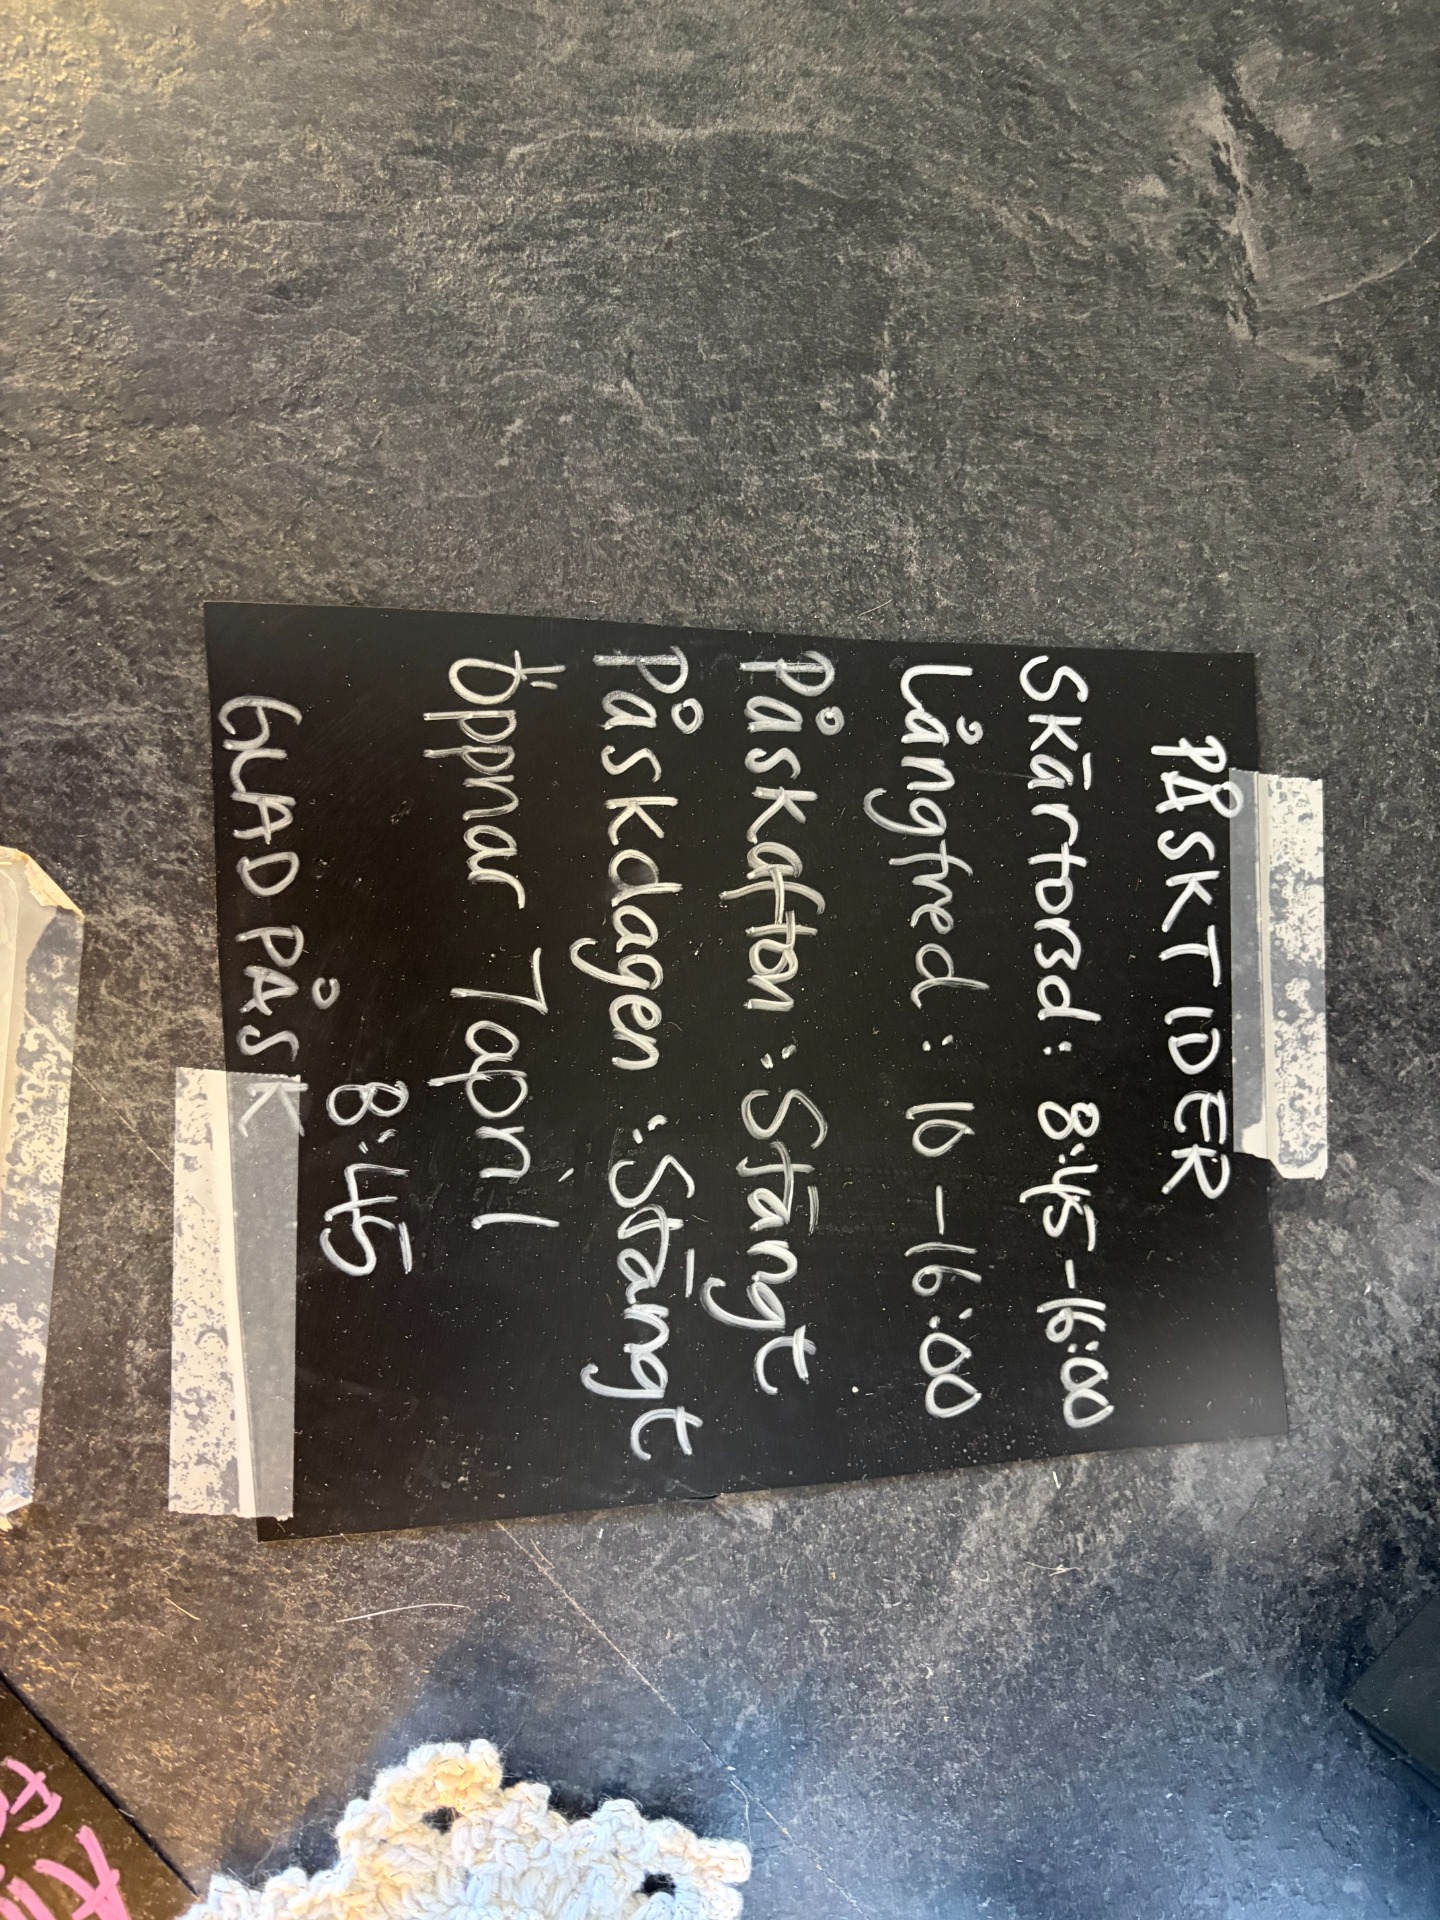 PÅSKTIDER
Skärtorsd: 8:45-16:00
Långfred: 10-16:00
Påskafton: Stängt
Påskdagen: Stängt
Öppnar 7april
8:45
GLAD PÅSK